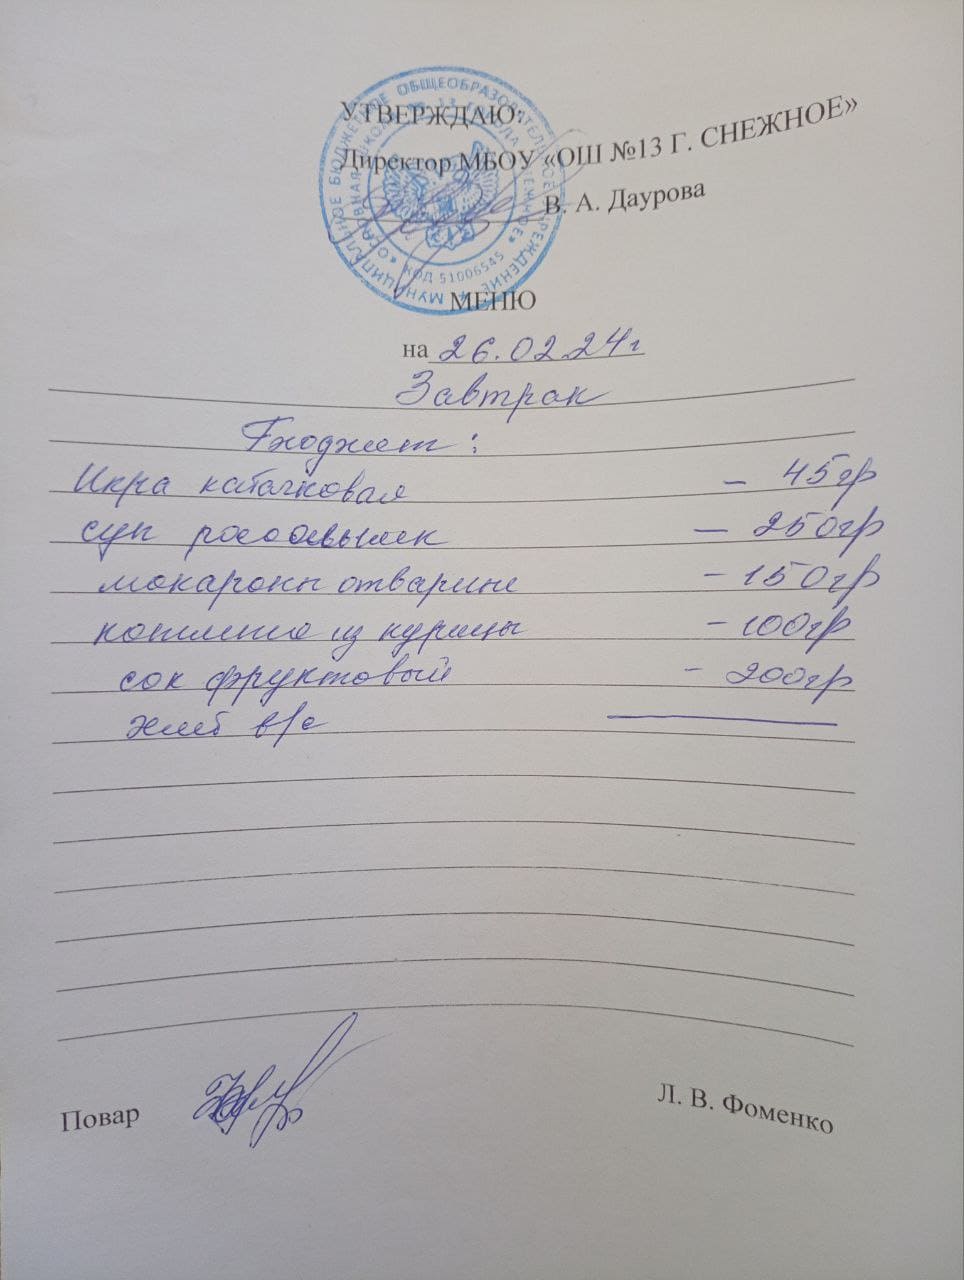 УТВЕРЖДАЮ:
Директор МБОУ «ОШ №13 Г. СНЕЖНОЕ»
В. А. Даурова
МУНИЦИПАЛЬНОЕ БЮДЖЕТНОЕ ОБЩЕОБРАЗОВАТЕЛЬНОЕ УЧРЕЖДЕНИЕ
КОД 51006545
МЕНЮ
на 26.02.24г
Завтрак
Бюджет:
Икра кабачковая - 45гр
суп - 250гр
макароны отварные - 150гр
котлета из курицы - 100гр
сок фруктовый - 200гр
хлеб в/с
Повар Л. В. Фоменко